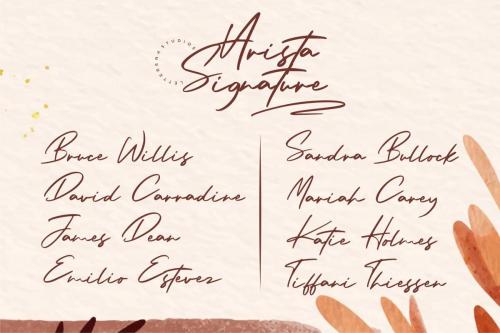 Arista
Signature
LETTERBOX STUDIOS
Bruce Willis
David Carradine
James Dean
Emilio Estevez
Sandra Bullock
Mariah Carey
Katie Holmes
Tiffani Thiessen